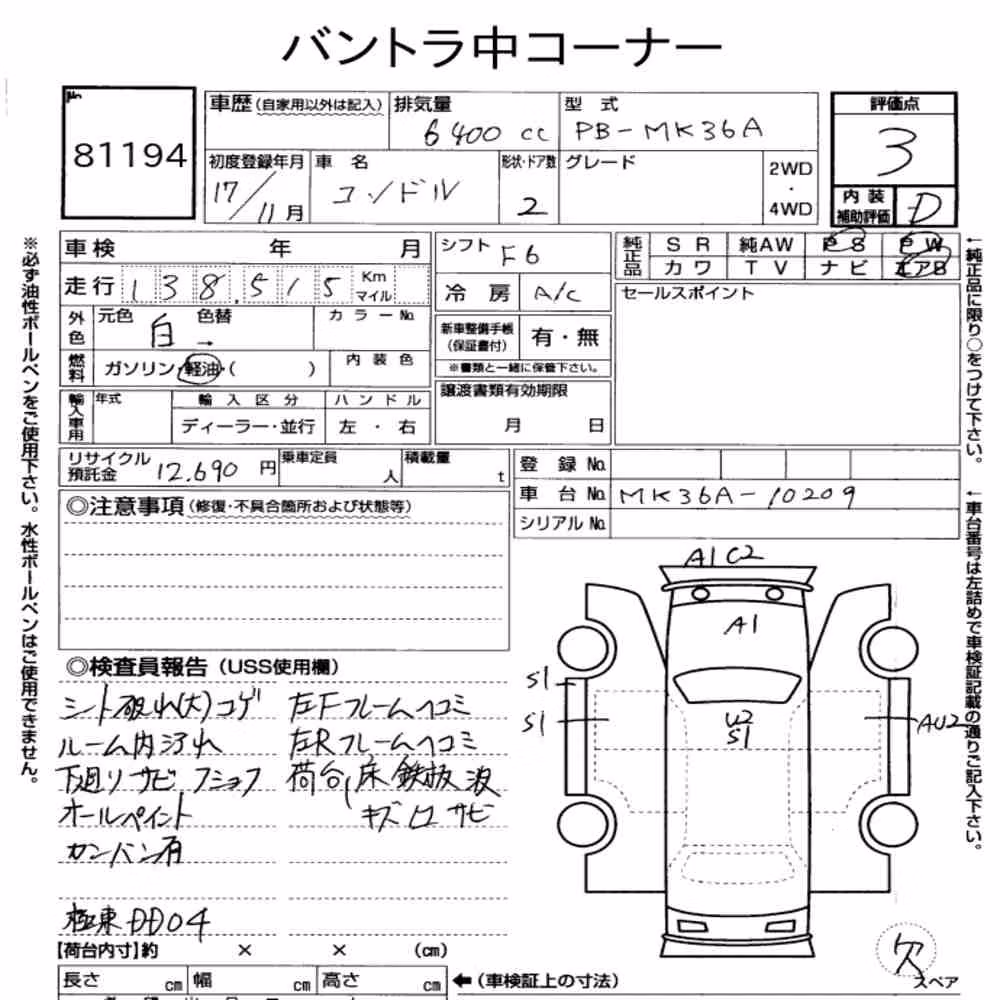 バントラ中コーナー
No. 81194
車歴(自家用以外は記入) 排気量 6400 cc 型 式 PB-MK36A
初度登録年月 17/11月 車 名 コンドル 形状・ドア数 2 グレード 2WD・4WD
評価点 3
内装補助評価 D
※必ず油性ボールペンをご使用下さい。水性ボールペンはご使用できません。
車検 年 月
走行 138,515 Km マイル
外色 元色 白 色替 → カラーNo.
燃料 ガソリン・軽油・( ) 内装色
輸入車用 年式 輸入区分 ディーラー・並行 ハンドル 左・右
リサイクル預託金 12,690円 乗車定員 人 積載量 t
シフト F6
冷房 A/C
新車整備手帳(保証書付) 有・無
※書類と一緒に保管下さい。
譲渡書類有効期限
月 日
純正品 SR 純AW PS PW
カワ TV ナビ エアB
セールスポイント
登録No.
車台No. MK36A-10209
シリアルNo.
←純正品に限り○をつけて下さい。
←車台番号は左詰めで車検証記載の通りご記入下さい。
◎注意事項(修復・不具合箇所および状態等)
◎検査員報告(USS使用欄)
シート破れ(大)コゲ 左Fフレームヘコミ
ルーム内汚れ 左Rフレームヘコミ
下廻りサビ フショク 荷台床鉄板波
オールペイント キズ凹サビ
カンバン有
極東DD04
A1C2
A1
S1
S1
U2
S1
AU2
欠
スペア
【荷台内寸】約 × × (cm)
長さ cm 幅 cm 高さ cm ←(車検証上の寸法)